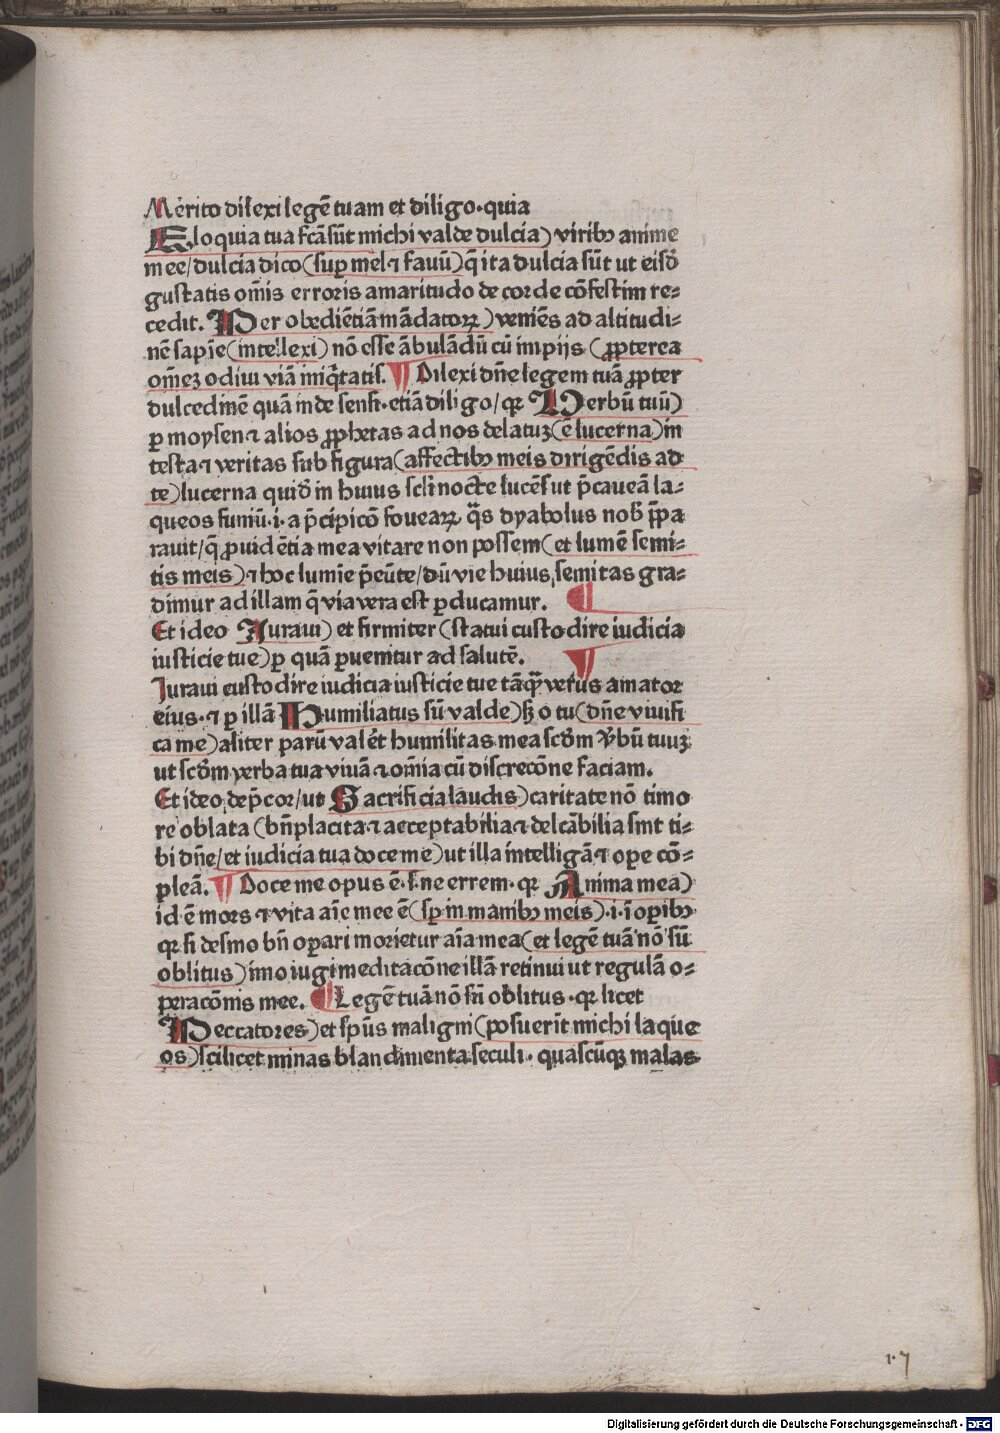 Merito dilexi legē tuam et diligo·quia
Eloquia tua fcā sūt michi valde dulcia) viribꝫ anime
mee/dulcia dico(suꝑ mel ⁊ fauū)q̄ ita dulcia sūt ut eisd̄
gustatis om̄is erroris amaritudo de corde cōfestim re⸗
cedit. Per obediētiā mādatoꝝ) veniēs ad altitudi⸗
nē sapīe(intellexi) nō esse ābulādū cū impijs (ꝓpterea
om̄eꝫ odiui viā iniq̄tatis. ¶ Dilexi dn̄e legem tuā ꝓpter
dulcedinē quā inde sensi·etiā diligo/qꝛ Verbū tuū)
ꝑ moysen ⁊ alios ꝓphetas ad nos delatuꝫ(ē lucerna)in
testa ⁊ veritas sub figura(affectibꝫ meis dirigēdis ad
te)lucerna quid̄ in huius scl̄i nocte lucēs ut p̄caueā la⸗
queos funiū·i·a p̄cipicō foueaꝝ q̄s dyabolus nob̄ p̄pa
rauit/q̄ ꝓuidētia mea vitare non possem(et lumē semi⸗
tis meis)⁊ hoc lumīe p̄eūte/dū vie huius semitas gra⸗
dimur ad illam q̄ via vera est ꝑducamur. ¶
Et ideo Iuraui) et firmiter (statui custodire iudicia
iusticie tue)ꝑ quā ꝑuenitur ad salutē. ¶
Iuraui custodire iudicia iusticie tue tāq̄ verus amator
eius·⁊ ꝑ illā Humiliatus sū valde)sꝫ o tu(dn̄e viuifi
ca me)aliter parū valet humilitas mea scd̄m v̄bū tuuꝫ
ut scd̄m verba tua viuā ⁊ om̄ia cū discrecōne faciam.
Et ideo dep̄cor/ut Sacrificia laudis)caritate nō timo
re oblata (bn̄placita ⁊ acceptabilia ⁊ delcābilia sint ti⸗
bi dn̄e/et iudicia tua doce me)ut illa intelligā ⁊ oꝑe cō⸗
pleā. ¶ Doce me opus ē·sine errem·qꝛ Anima mea)
id ē mors ⁊ vita aīe mee ē(sꝑ in manibꝫ meis)·i·ī oꝑibꝫ
qꝛ si desino bn̄ oꝑari morietur aīa mea(et legē tuā nō sū
oblitus)imo iugi meditacōne illā retinui ut regulā o⸗
peracōnis mee. ¶ Legē tuā nō sū oblitus·qꝛ licet
Peccatores)et spūs maligni(posuerīt michi laque
os)scilicet minas blandimenta seculi·quascūqꝫ malas
1·7
Digitalisierung gefördert durch die Deutsche Forschungsgemeinschaft - DFG